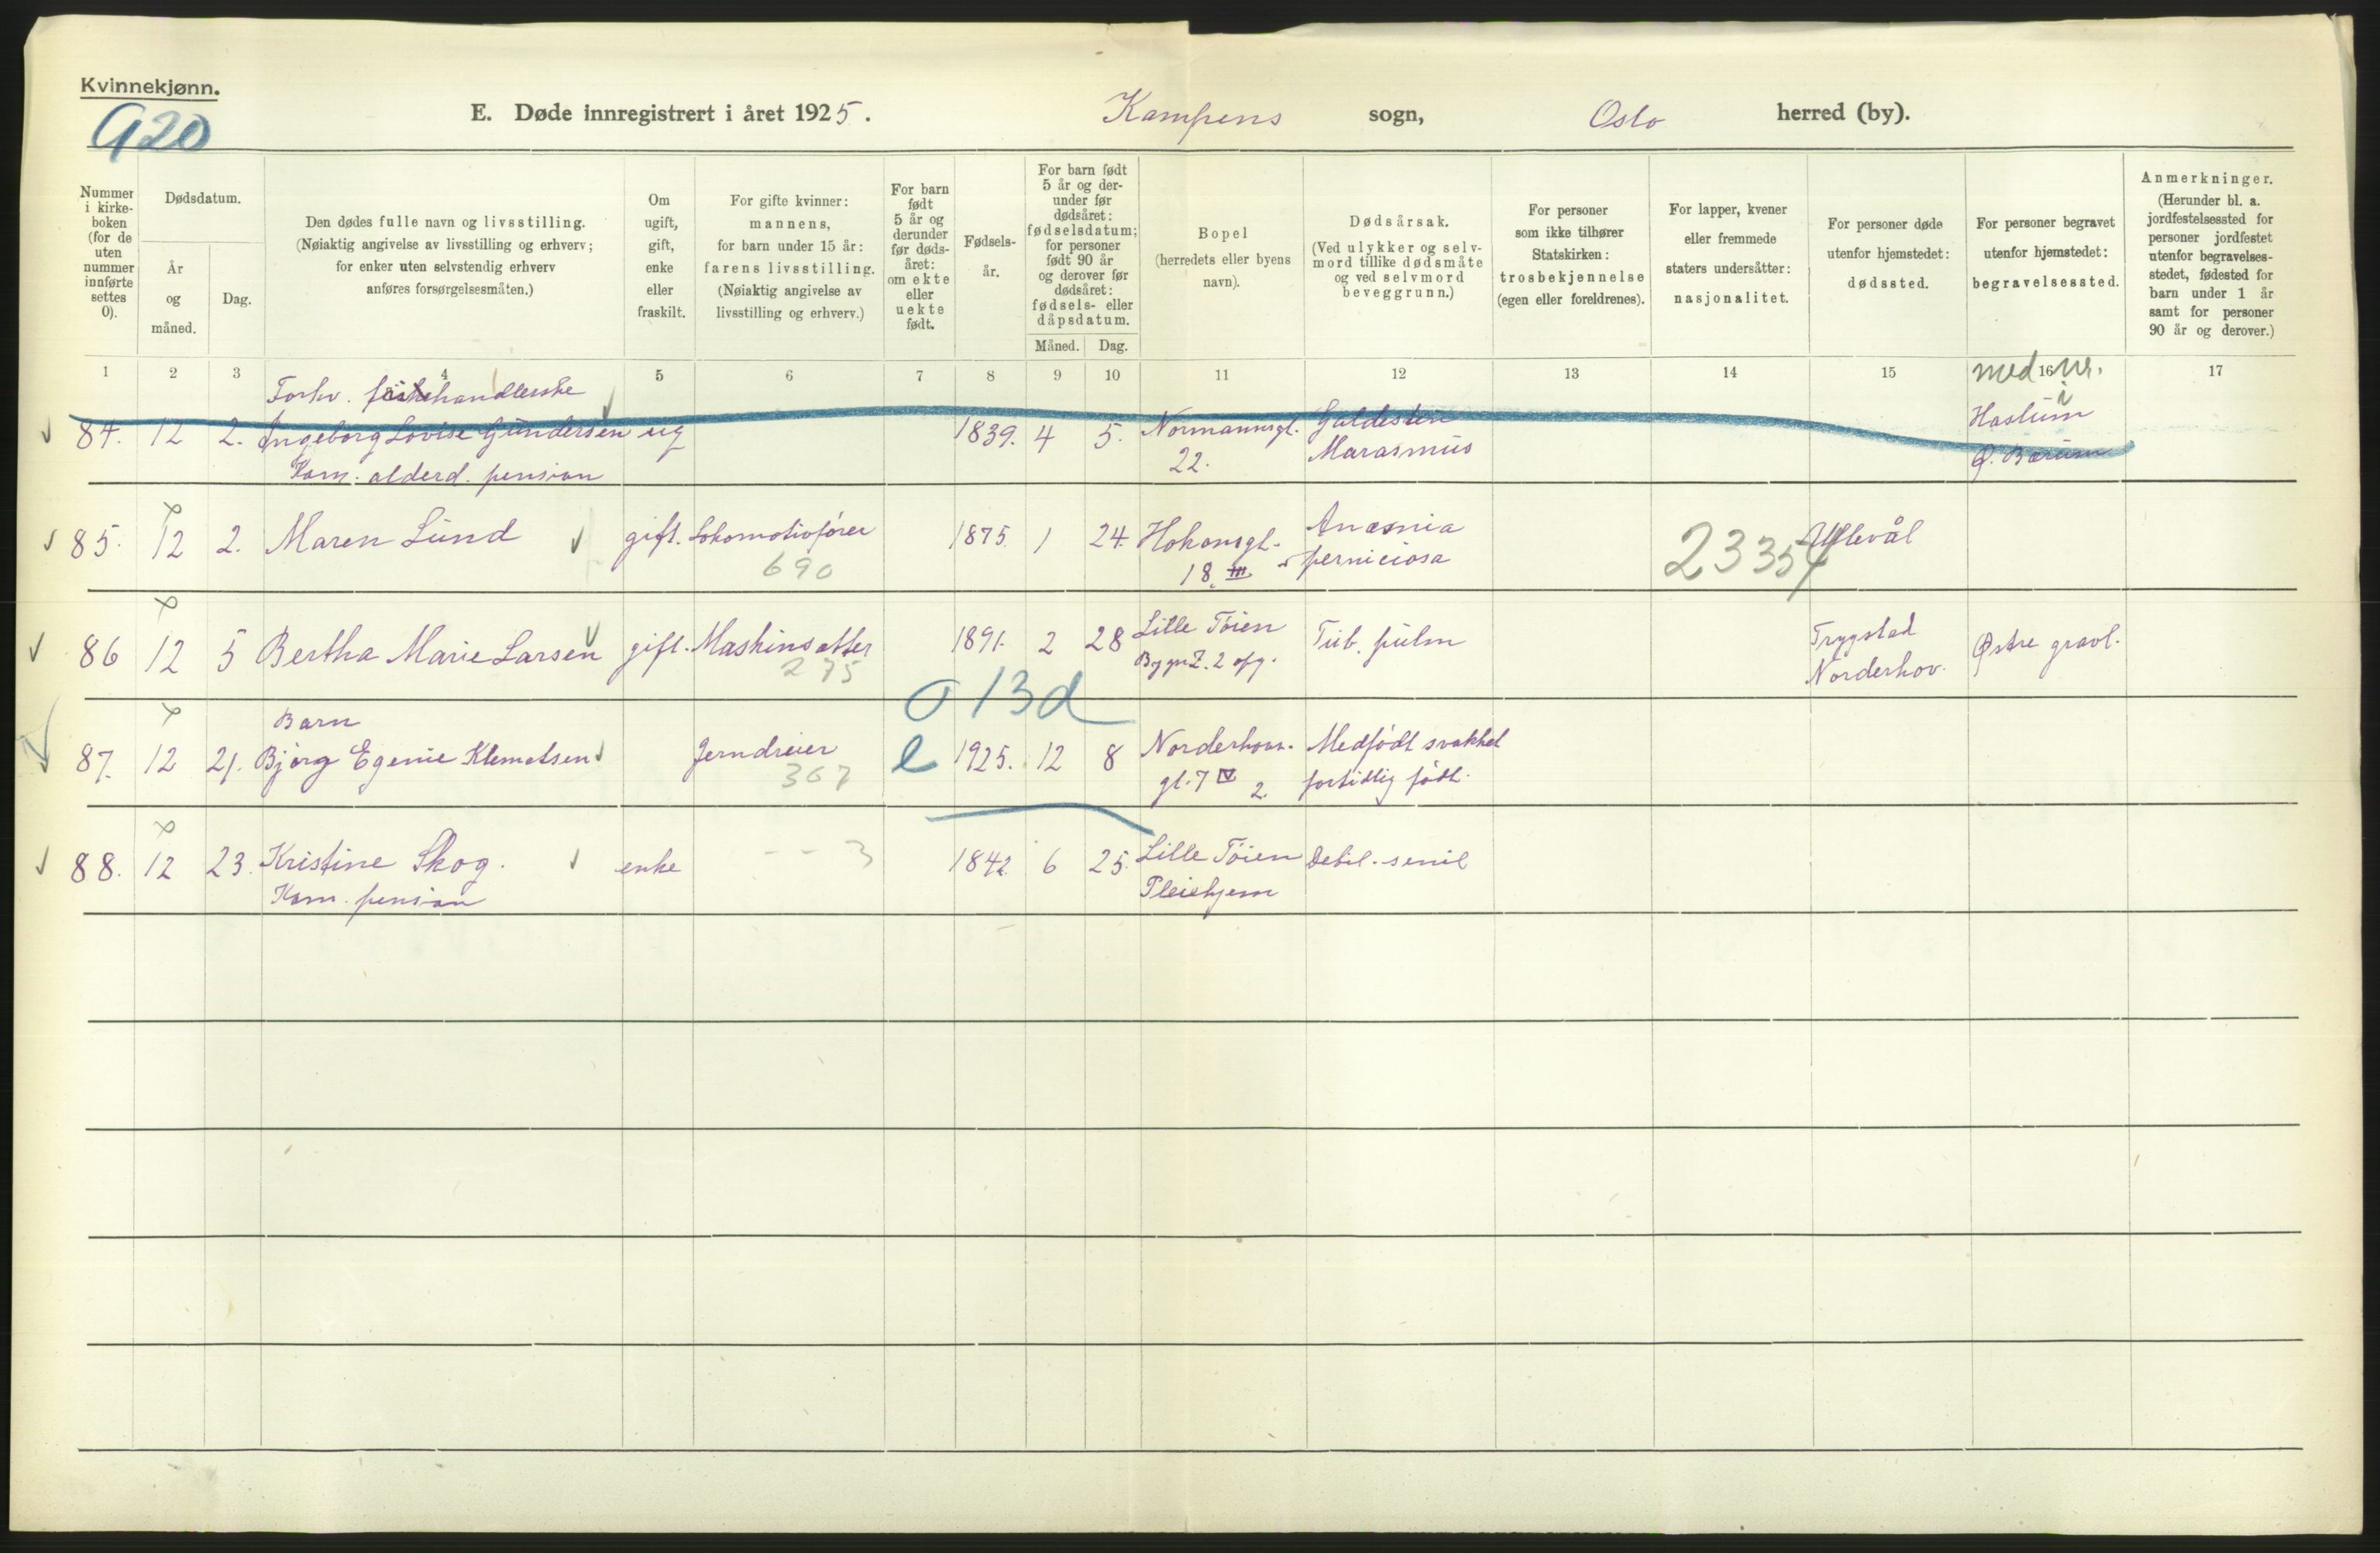 Kvinnekjønn.
920
E. Døde innregistrert i året 1925. Kampens sogn, Oslo herred (by).
Nummer i kirke-boken (for de uten nummer innførte settes 0).
Dødsdatum.
År og måned.
Dag.
Den dødes fulle navn og livsstilling.
(Nøiaktig angivelse av livsstilling og erhverv;
for enker uten selvstendig erhverv
anføres forsørgelsesmåten.)
Om ugift, gift, enke eller fraskilt.
For gifte kvinner:
mannens,
for barn under 15 år:
farens livsstilling.
(Nøiaktig angivelse av
livsstilling og erhverv.)
For barn født 5 år og derunder før døds-året: om ekte eller uekte født.
Fødsels-år.
For barn født 5 år og der-under før dødsåret: fødselsdatum; for personer født 90 år og derover før dødsåret: fødsels- eller dåpsdatum.
Måned. Dag.
Bopel
(herredets eller byens
navn).
Dødsårsak.
(Ved ulykker og selv-
mord tillike dødsmåte
og ved selvmord
beveggrunn.)
For personer
som ikke tilhører
Statskirken:
trosbekjennelse
(egen eller foreldrenes).
For lapper, kvener
eller fremmede
staters undersåtter:
nasjonalitet.
For personer døde
utenfor hjemstedet:
dødssted.
For personer begravet
utenfor hjemstedet:
begravelsessted.
Anmerkninger.
(Herunder bl. a.
jordfestelsessted for
personer jordfestet
utenfor begravelses-
stedet, fødested for
barn under 1 år
samt for personer
90 år og derover.)
1 2 3 4 5 6 7 8 9 10 11 12 13 14 15 16 17
med nr.
Forhv. fiskehandlerske
84. 12 2. Ingeborg Lovise Gundersen ug 1839. 4 5. Normannsgt. Galdesten Haslum i
Kom. alderd. pension 22. Marasmus Ø. Bærum
85. 12 2. Maren Lund gift. Lokomotivfører 1875. 1 24. Hokonsgt. Anæmia Ullevål
690 18. III perniciosa 23354
86 12 5 Bertha Marie Larsen gift. Maskinsetter 1891. 2 28 Lille Tøien Tub. pulm Trygstad Østre gravl.
275 Bygn Z. 2 opg. Norderhov.
0 13d
Barn
87. 12 21. Bjørg Egenie Klemetsen Jerndreier e 1925. 12 8 Norderhovs. Medfødt svakhet
367 gt. 7 IV 2. fortidlig født.
88. 12 23. Kristine Skog. enke - - 3 1842. 6 25. Lille Tøien Debil. senil
Kom. pension Pleiehjem